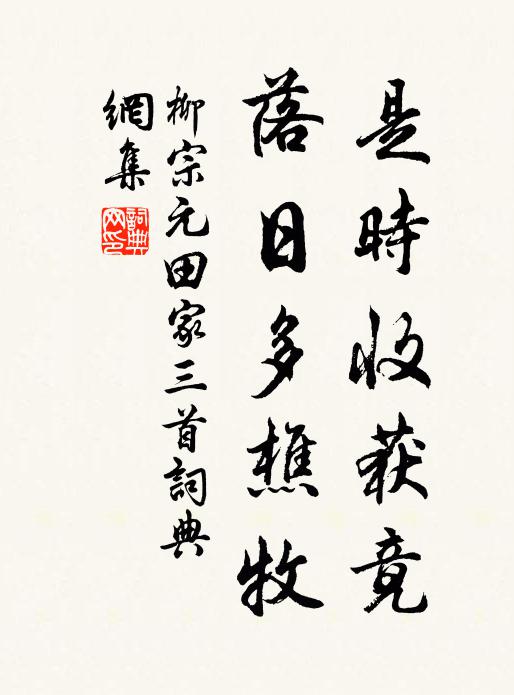 是時收获竟
落日多樵牧
柳宗元田家三首詞典
網集
詞典
网印